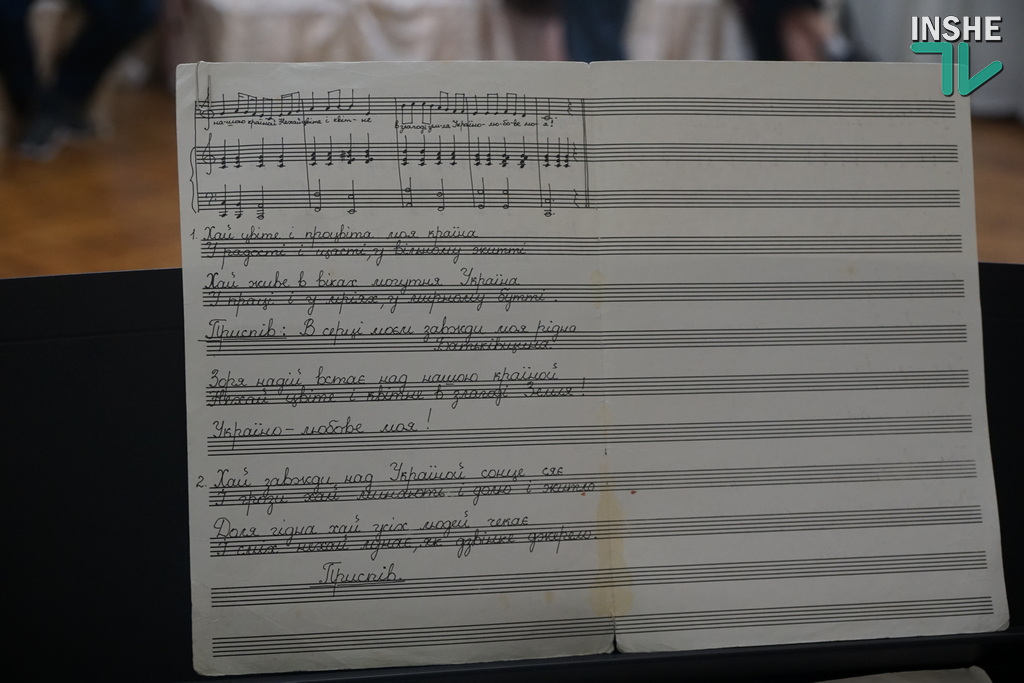 INSHE
TV
нашою країной Нехай цвіте і квіт-не в злагоді земля Україно-лю-бо-ве мо-я!
1. Хай цвіте і процвіта моя країна
У радості і щасті, у вільному житті
Хай живе в віках могутня Україна
У праці і у мріях, у мирному бутті.
Приспів: В серці моєм завжди моя рідна
Батьківщина
Зоря надій встає над нашою країной
Нехай цвіте і квітне в злагоді Земля!
Україно-любове моя!
2. Хай завжди над Україной сонце сяє
І грози хай минають і долю і житло
Доля гідна хай усіх людей чекає
І сміх нехай лунає, як дзвінке джерело.
Приспів.